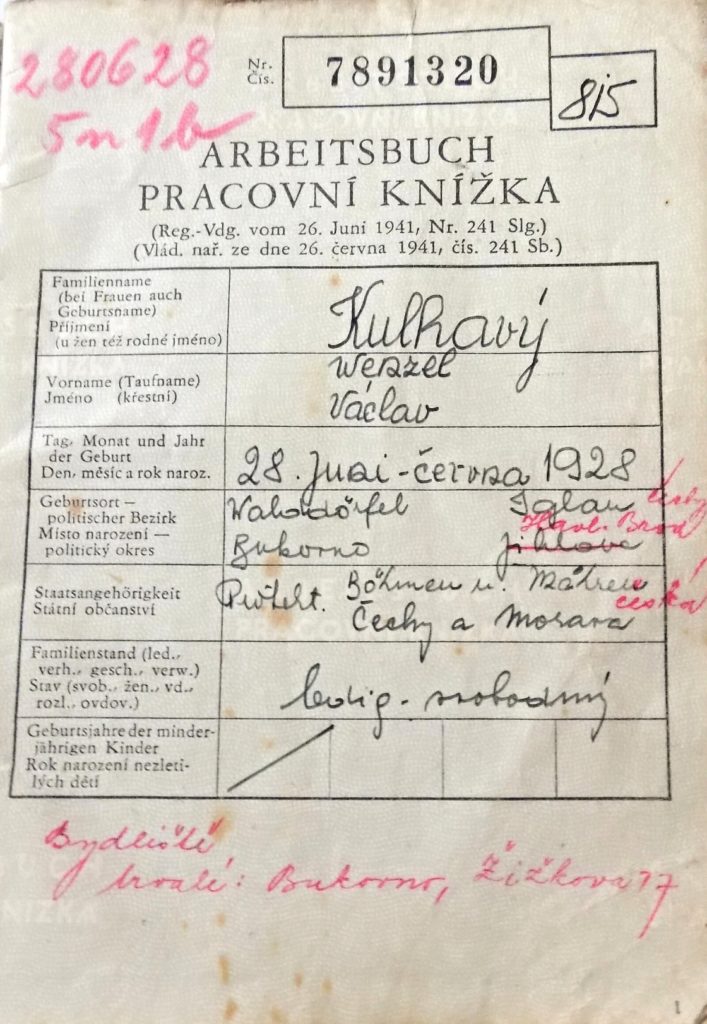 280628
5n1b
Nr.
Čís.
7891320
8/5
ARBEITSBUCH
PRACOVNÍ KNÍŽKA
(Reg.-Vdg. vom 26. Juni 1941, Nr. 241 Slg.)
(Vlád. nař. ze dne 26. června 1941, čís. 241 Sb.)
Familienname
(bei Frauen auch
Geburtsname)
Příjmení
(u žen též rodné jméno)
Kulhavý
Vorname (Taufname)
Jméno (křestní)
Wenzel
Václav
Tag, Monat und Jahr
der Geburt
Den, měsíc a rok naroz.
28. Juni - června 1928
Geburtsort –
politischer Bezirk
Místo narození –
politický okres
Iglau
Havl. Brod
Bukovno
Jihlava
Staatsangehörigkeit
Státní občanství
Protekt. Böhmen u. Mähren
česká
Čechy a Morava
Familienstand (led.,
verh., gesch., verw.)
Stav (svob., žen., vd.,
rozl., ovdov.)
ledig - svobodný
Geburtsjahre der minder-
jährigen Kinder
Rok narození nezleti-
lých dětí
Bydliště
trvalé: Bukovno, Žižkova 77
1